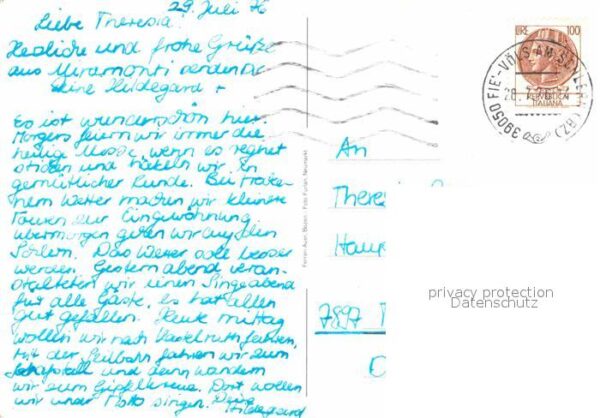 29. Juli 76
Liebe Theresia!
Herzliche und frohe Grüße
aus Miramonti senden Dir
Deine Hildegard +
Es ist wunderschön hier.
Morgens feiern wir immer die
heilige Messe, wenn es regnet
sticken und häkeln wir in
gemütlicher Runde. Bei trocke-
nem Wetter machen wir kleinere
Touren zur Eingewöhnung
übermorgen gehen wir auf den
Schlern. Das Wetter soll besser
werden. Gestern abend veran-
stalteten wir einen Singeabend
für alle Gäste, es hat allen
gut gefallen. Heute mittag
wollen wir nach Kastelruth fahren,
mit der Seilbahn fahren wir zum
und dann wandern
wir zum Gipfelkreuz. Dort wollen
wir unser Motto singen. Deine
Hildegard
Foto Furlan, Neumarkt
LIRE 100
REPUBBLICA
ITALIANA
39050 FIE'-VÖLS AM SCHLERN (BZ)
28.7.76
An
There
Haup
7897
privacy protection
Datenschutz